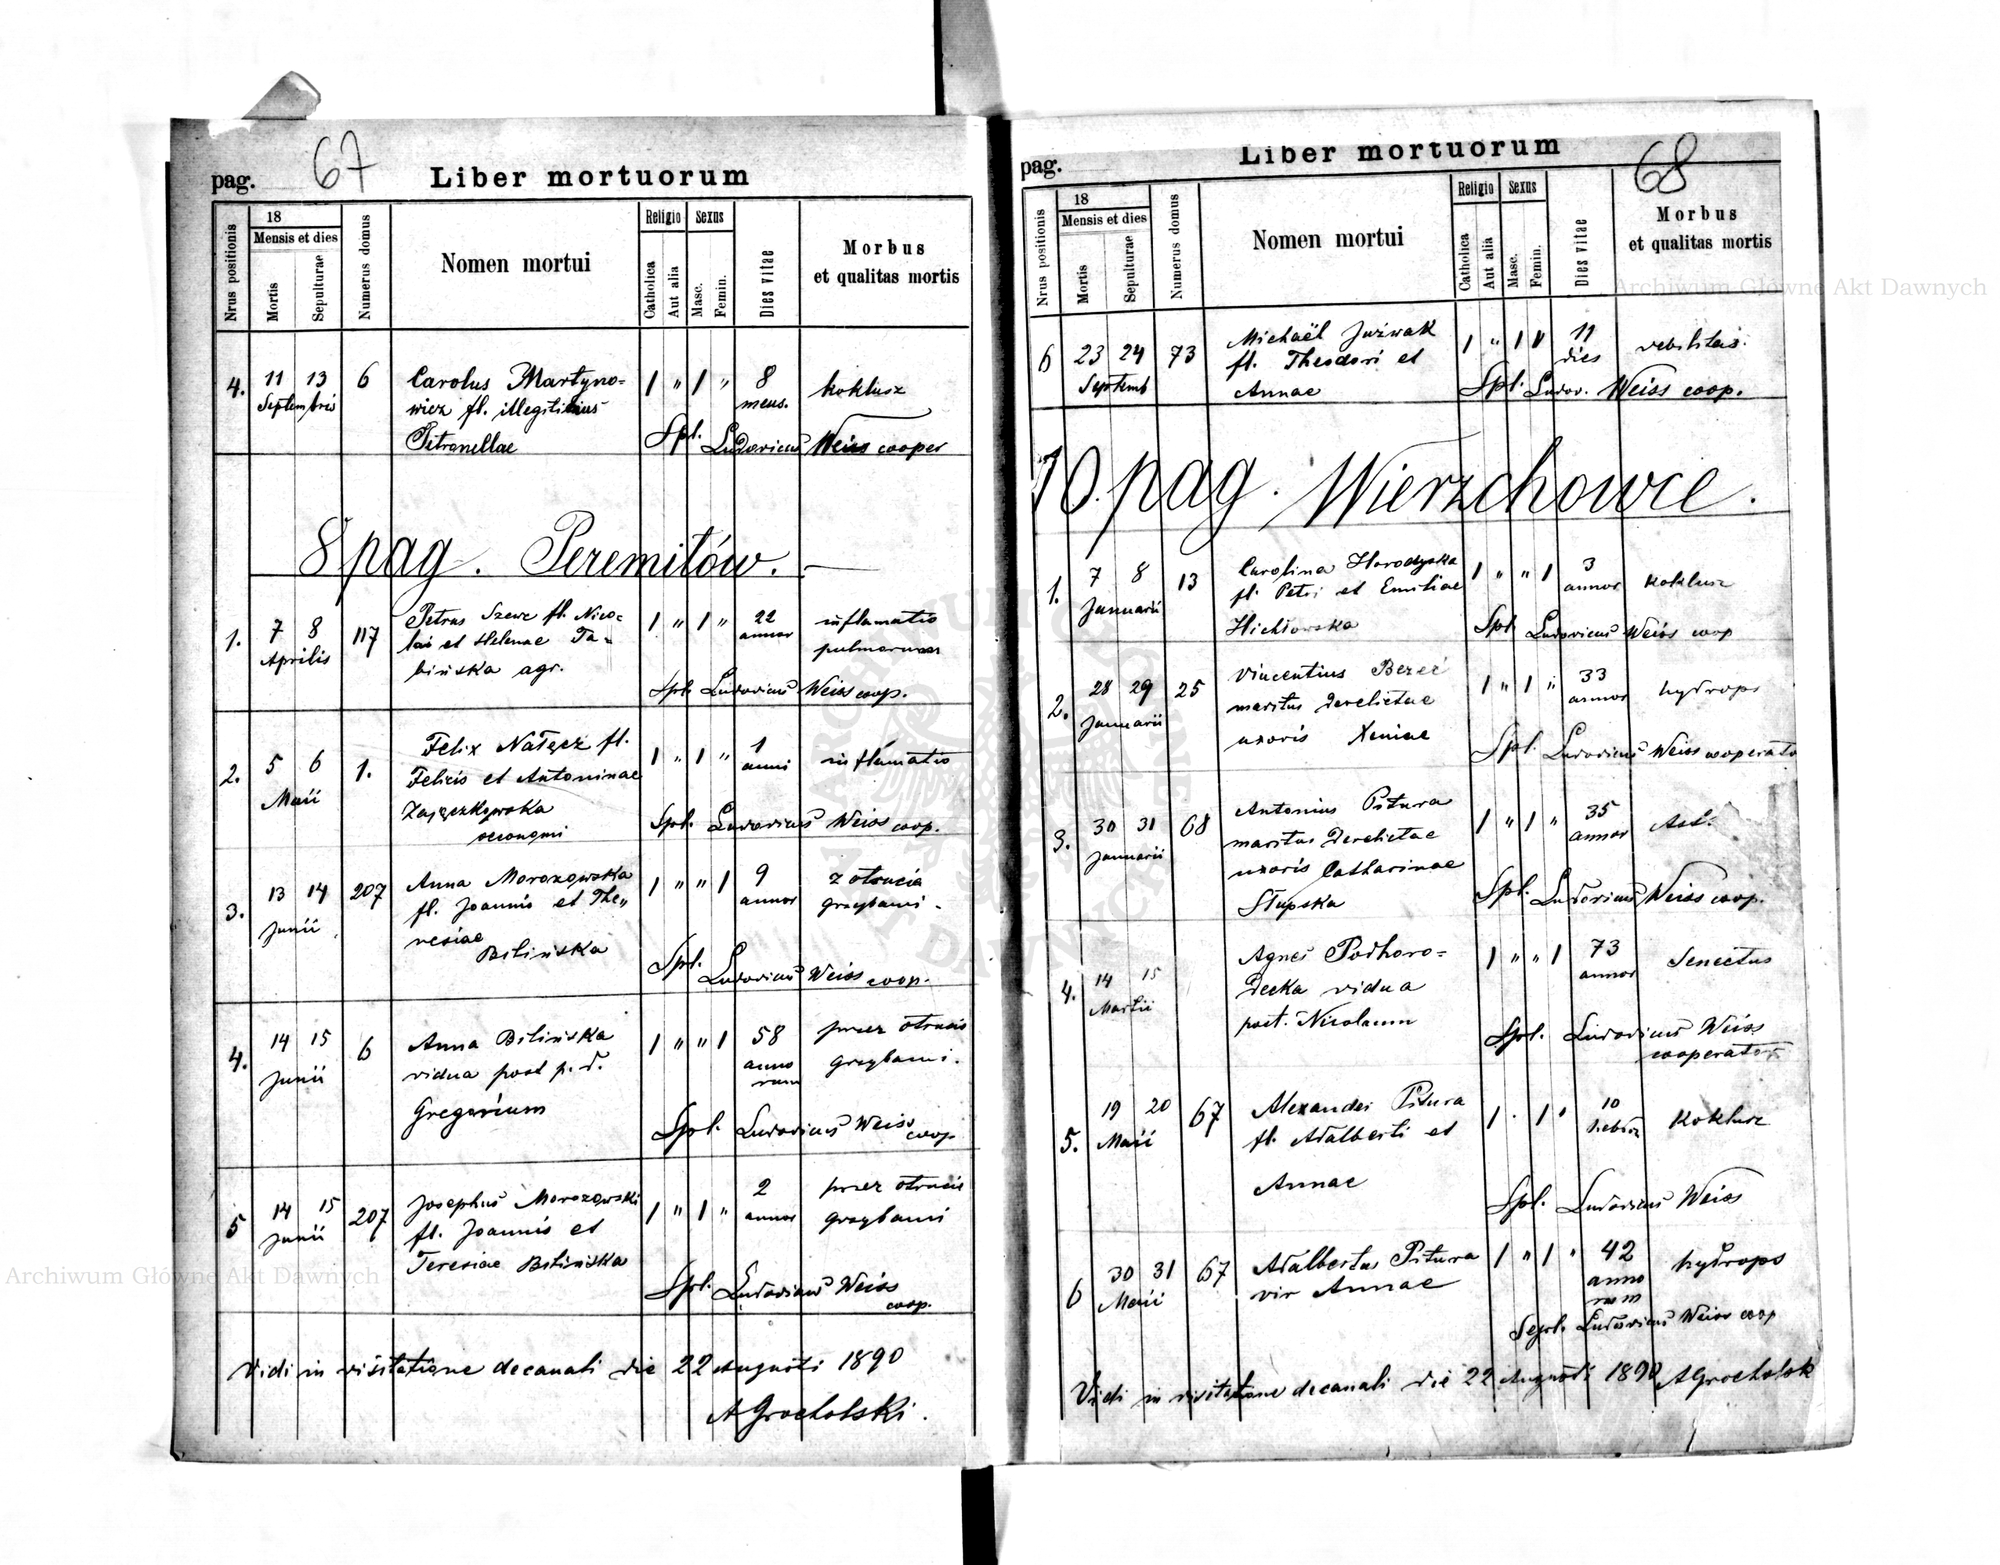 67
pag.
Liber mortuorum
Nrus positionis
18
Mensis et dies
Mortis
Sepulturae
Numerus domus
Nomen mortui
Religio
Catholica
Aut alia
Sexus
Masc.
Femin.
Dies vitae
Morbus
et qualitas mortis
4. 11 13 6 Carolus Martyno= 1 " 1 " 8 koklusz
Septembris wicz fl. illegitimus mens.
Petronellae Spl. Ludovicus Weiss cooper
8 pag. Peremiłów.
1. 7 8 117 Petrus Szewc fl. Nico- 1 " 1 " 22 inflamatio
Aprilis lai et Helenae Ta- annor pulmorum
bińska agr.
Spl. Ludovicus Weiss coop.
2. 5 6 1. Felix Nałęcz fl. 1 " 1 " 1 inflamatio
Maii Felicis et Antoninae anni
Zajęczkowska Spl. Ludovicus Weiss coop.
3. 13 14 207 Anna Morozowska 1 " " 1 9 z otrucia
Junii fl. Joannis et The,, annor grzybami.
resiae
Bilińska Spl. Ludovicus Weiss coop.
4. 14 15 6 Anna Bilińska 1 " " 1 58 przez otrucie
Junii vidua post p. d. anno grzybami.
Gregorium rum
Spl. Ludovicus Weiss coop
5 14 15 207 Josephus Morozowski 1 " 1 " 2 przez otrucie
Junii fl. Joannis et annor grzybami
Teresiae Bilińska
Spl. Ludovicus Weiss
coop.
Vidi in visitatione decanali die 22 Augusti 1890
AGrocholski.
68
pag.
Liber mortuorum
Nrus positionis
18
Mensis et dies
Mortis
Sepulturae
Numerus domus
Nomen mortui
Religio
Catholica
Aut alia
Sexus
Masc.
Femin.
Dies vitae
Morbus
et qualitas mortis
6 23 24 73 Michaël Juźwak 1 " 1 " 11 debilitas.
Septemb fl. Theodori et dies
Annae Spl. Ludov. Weiss coop.
10. pag. Wierzchowce.
1. 7 8 13 Carolina Horodyska 1 " " 1 3 koklusz
Januarii fl. Petri et Emiliae annor
Hichłowska Spl. Ludovicus Weiss coop
2. 28 29 25 Vincentius Bereć 1 " 1 " 33 hydrops
Januarii maritus derelictae annor
uxoris Xeniae Spl. Ludovicus Weiss cooperato
3. 30 31 68 Antonius Pitura 1 " 1 " 35
Januarii maritus derelictae annor
uxoris Catharinae
Słupska Spl. Ludovicus Weiss coop.
4. 14 15 Agnes Podhoro= 1 " " 1 73 Senectus
Martii decka vidua annor
post. Nicolaum
Spl. Ludovicus Weiss
cooperator
5. 19 20 67 Alexander Pitura 1 . 1 " 10 koklusz
Maii fl. Adalberti et hebdz
Annae
Spl. Ludovicus Weiss
6 30 31 67 Adalbertus Pitura 1 " 1 " 42 hydrops
Maii vir Annae anno
rum
Sepl. Ludovicus Weiss coop
Vidi in visitatione decanali die 22 Augusti 1890 AGrocholsk
Archiwum Główne Akt Dawnych
Archiwum Główne Akt Dawnych
ARCHIWUM GŁÓWNE AKT DAWNYCH